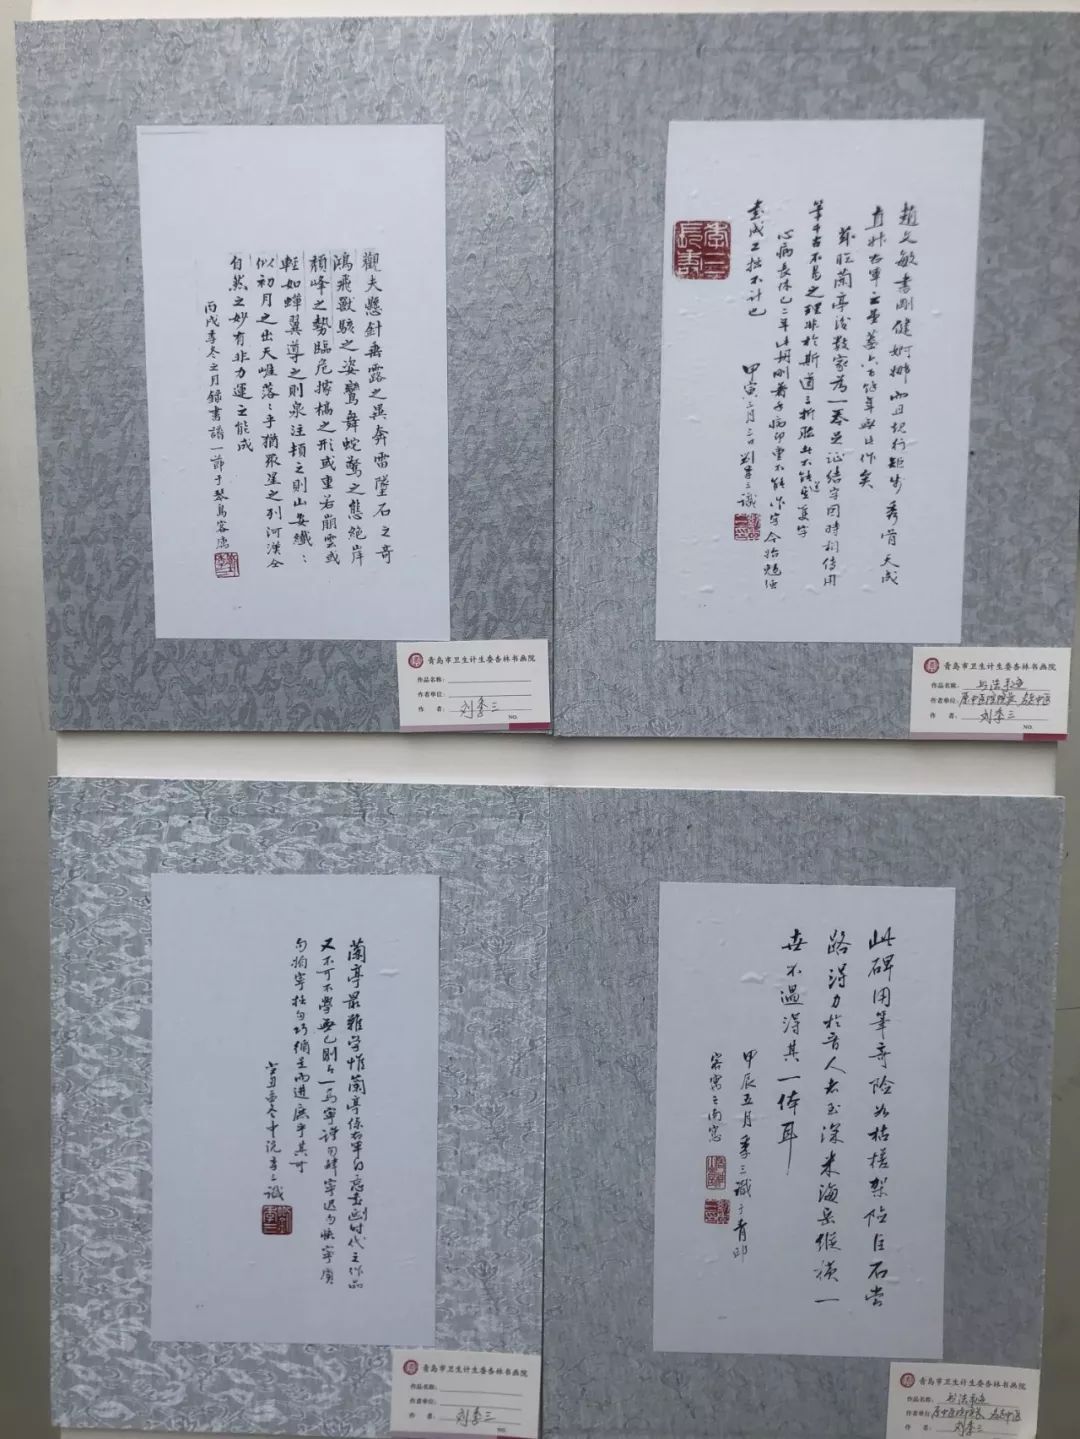 觀夫懸針垂露之異奔雷墜石之奇
鴻飛獸駭之姿鸞舞蛇驚之態絕岸
頹峰之勢臨危據槁之形或重若崩雲或
輕如蟬翼導之則泉注頓之則山安纖:
似初月之出天崖落:乎猶眾星之列河漢仝
自然之妙有非力運之能成
丙戌季冬之月錄書譜一節于琴島客寓
青岛市卫生计生委杏林书画院
作品名称:
作者单位:
作 者: 刘季三
NO.
趙文敏書剛健婀娜而且規行矩步秀骨天成
直州右軍之 蓋六百餘年無此作矣
臨蘭亭後數家為一卷足証結字因時相傳用
筆千古不易之理非於斯道三折肱者不能道隻字
心病長休已二年此冊剛著手病即重不能作字今始勉強
書成工拙不計也
甲寅三月三日刘季三識
季三長壽
青岛市卫生计生委杏林书画院
作品名称:
作者单位:
作 者: 刘季三
NO.
蘭亭最難學惟蘭亭係右軍的 畫劃時代之作品
又不可不學無已則取一焉寧 勿肆寧遲勿快寧廣
勿拘寧拙勿巧循是而進庶乎其可
癸丑 冬中浣季三識
青岛市卫生计生委杏林书画院
作品名称:
作者单位:
作 者: 刘季三
NO.
此碑用筆奇險如枯槎架險巨石當
路得力於晉人者至深米海岳縱橫一
世不過得其一體耳
甲辰五月季三識于青邱
客寓之南窗
青岛市卫生计生委杏林书画院
作品名称:
作者单位:
作 者: 刘季三